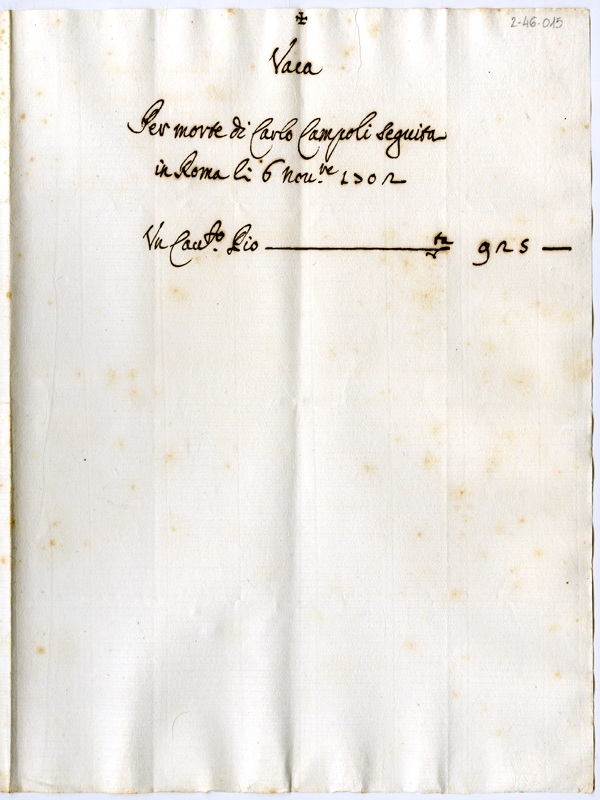 2-46-015
✠
Vaca
Per morte di Carlo Campoli seguita
in Roma li 6 Nou.re 1702
Vn Cau.to Pio 925